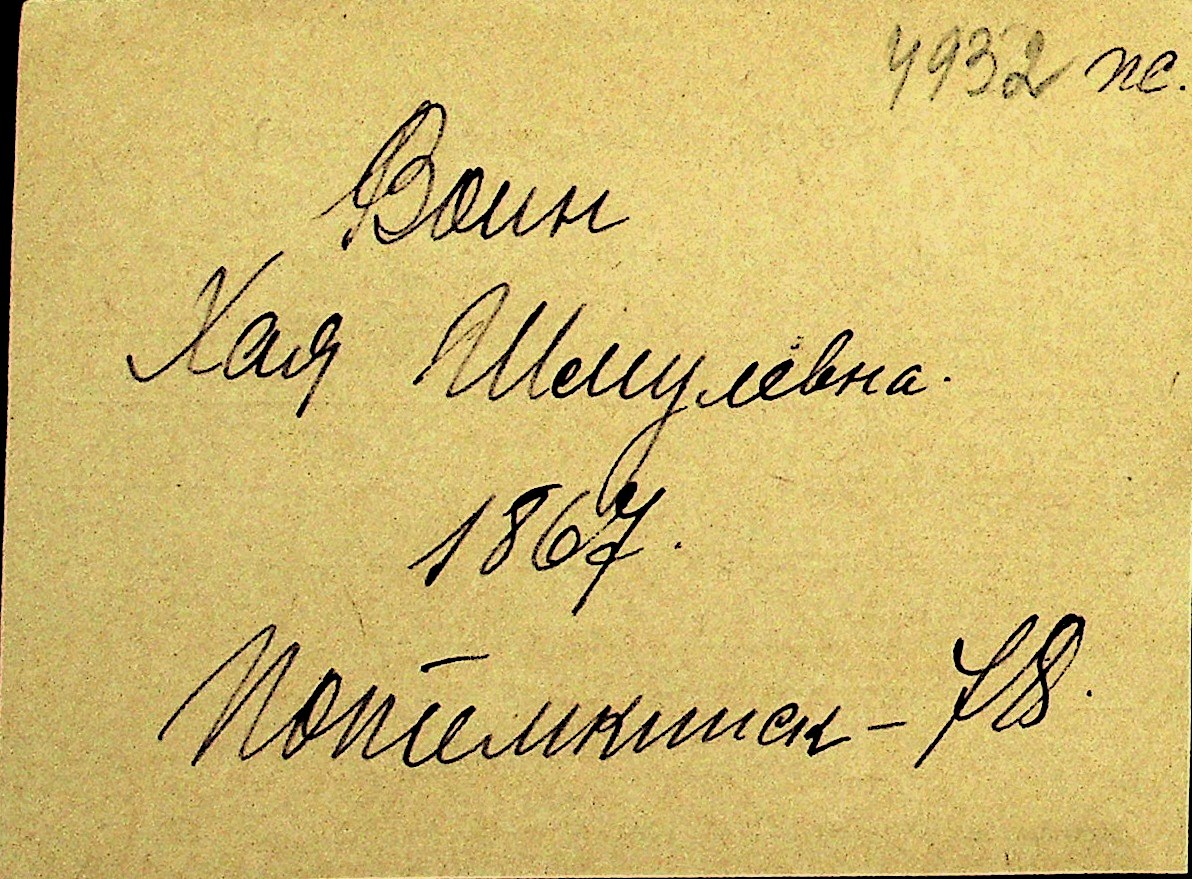 4932 пс.
Воин
Хая Шмулевна.
1867.
Потемкинск - 78.